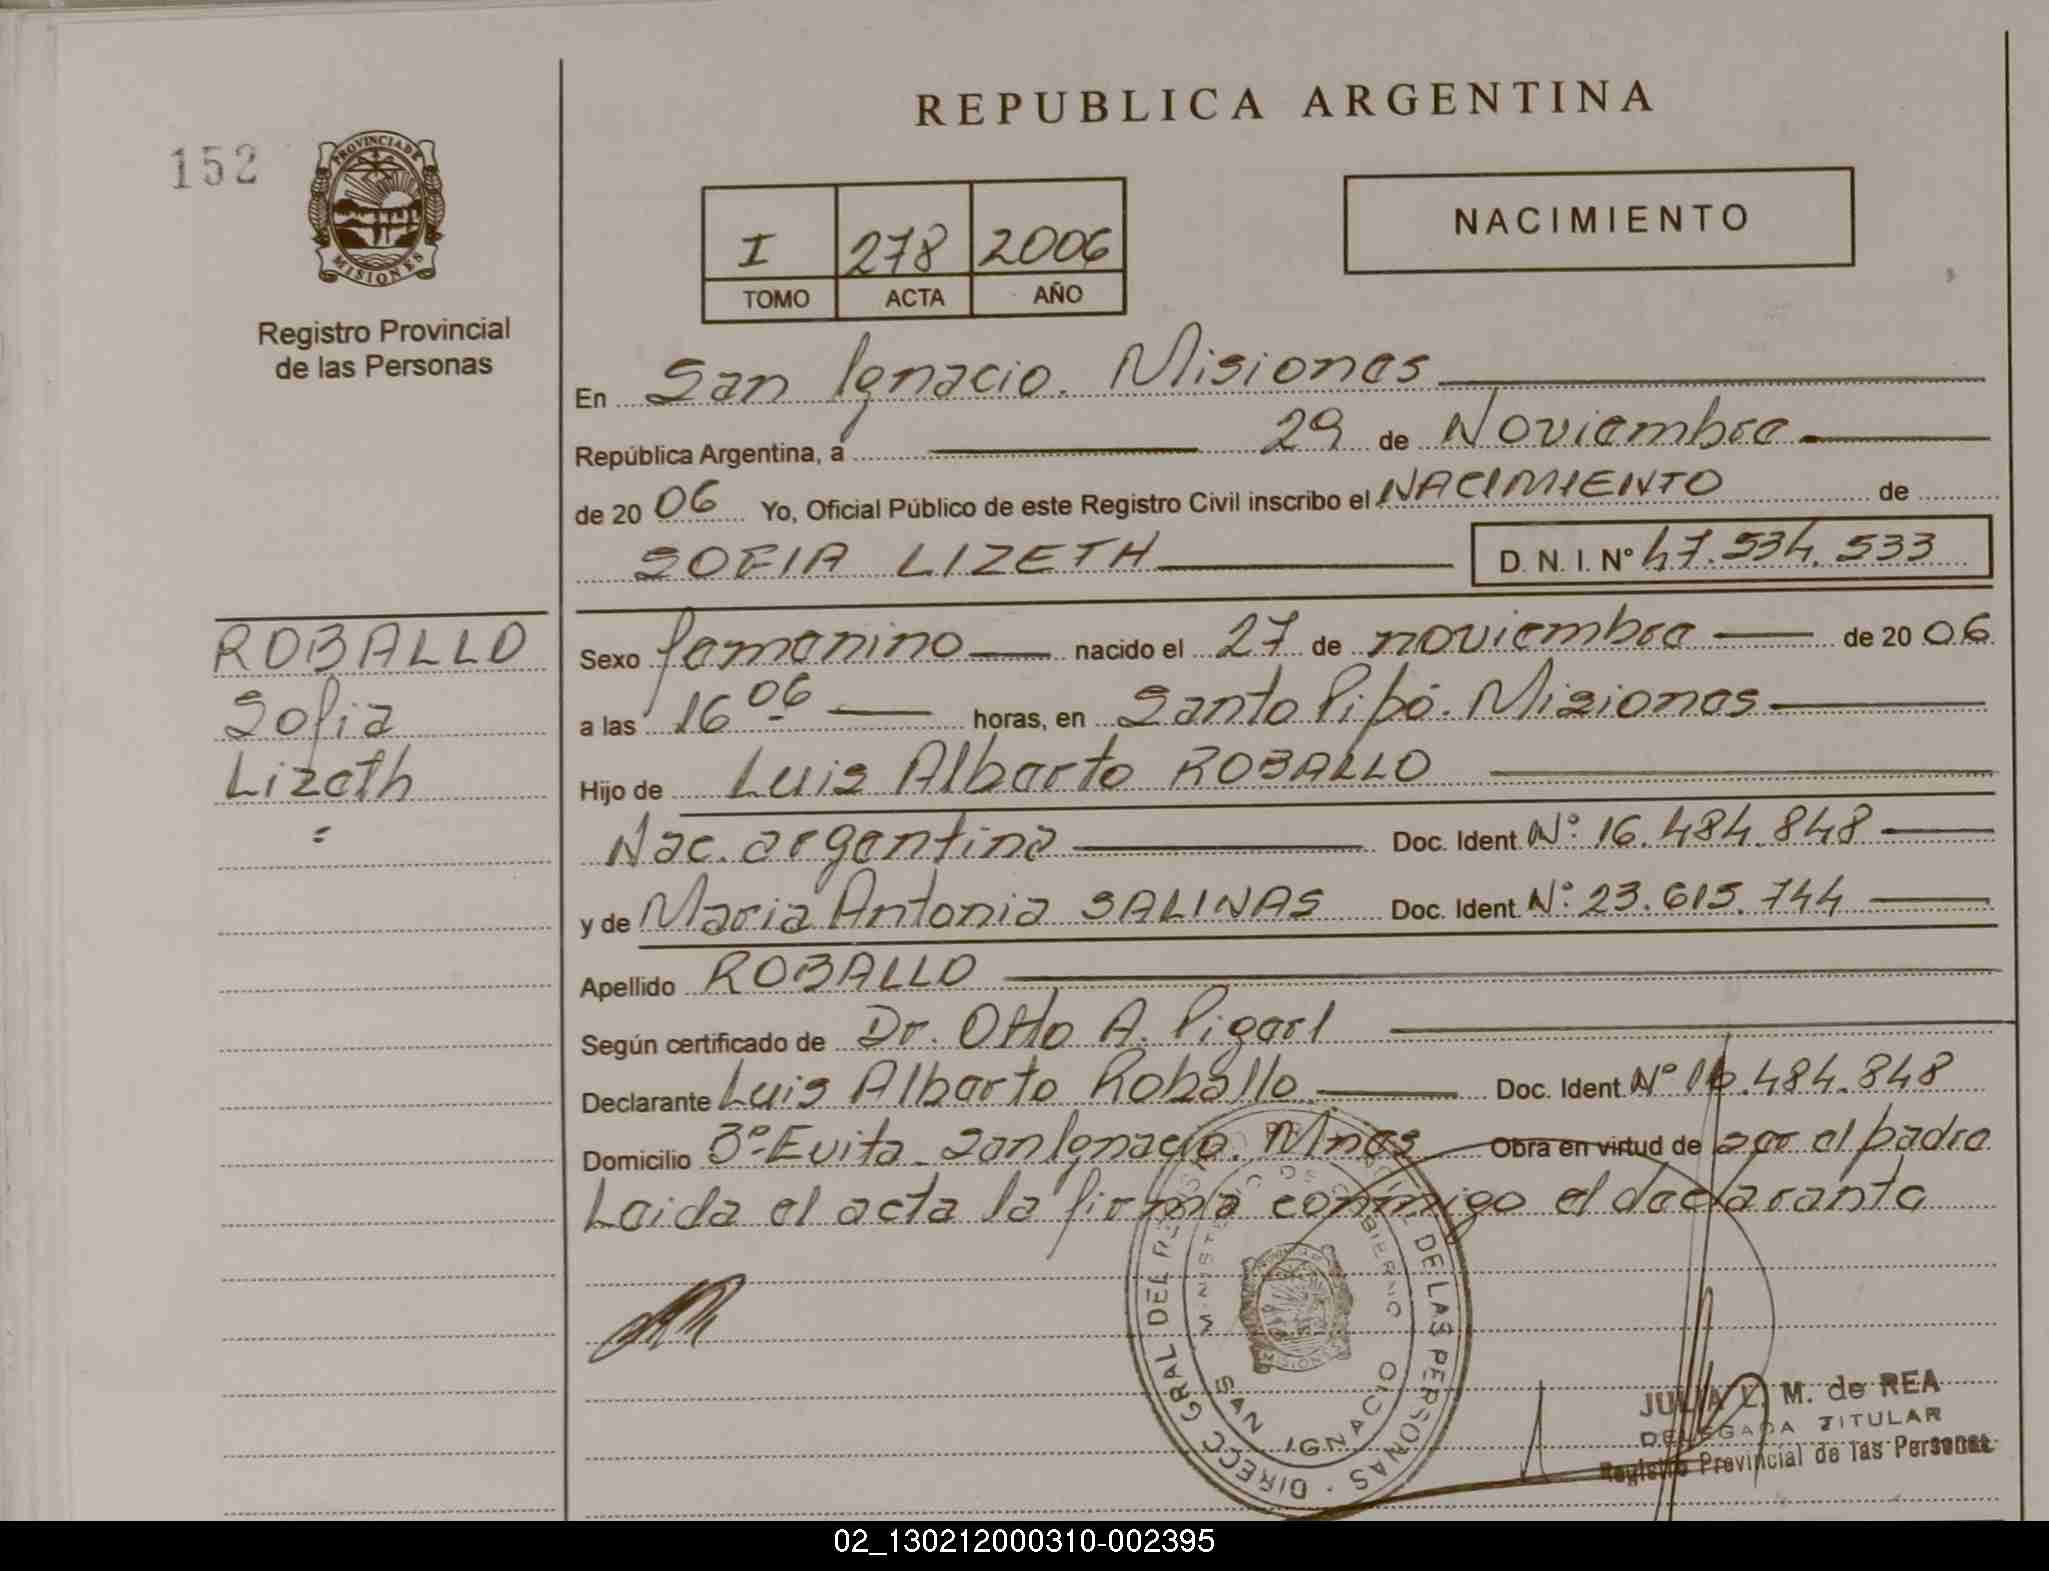 REPUBLICA ARGENTINA
152
PROVINCIA DE
MISIONES
Registro Provincial
de las Personas
NACIMIENTO
I 278 2006
TOMO ACTA AÑO
En San Ignacio. Misiones
República Argentina, a 29 de Noviembre
de 20 06 Yo, Oficial Público de este Registro Civil inscribo el NACIMIENTO de
SOFIA LIZETH D. N. I. Nº 47.534.533
ROBALLO
Sofia
Lizeth
Sexo femenino nacido el 27 de noviembre de 20 06
a las 16 06 horas, en Santo Pipó. Misiones
Hijo de Luis Alberto ROBALLO
Nac. argentina Doc. Ident. Nº: 16.484.848
y de Maria Antonia SALINAS Doc. Ident. Nº: 23.615.744
Apellido ROBALLO
Según certificado de Dr. Otto A.
Declarante Luis Alberto Roballo Doc. Ident. Nº 16.484.848
Domicilio Bº Evita San Ignacio. Mnes Obra en virtud de ser el padre
Leida el acta la firma conmigo el declarante
DIRECC GRAL DEL DE LAS PERSONAS
MINISTERIO DE GOBIERNO
SAN IGNACIO
MISIONES
JULIA L. M. de REA
DELEGADA TITULAR
Registro Provincial de las Personas
02_130212000310-002395